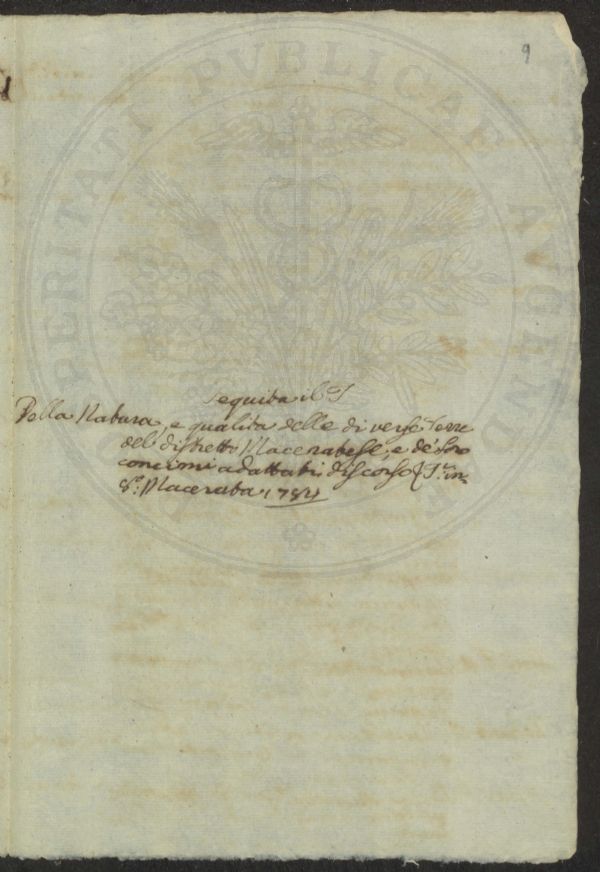 9
PROSPERITATI PVBLICAE AVGENDAE
Seguita il T
Della Natura, e qualità delle diverse Terre
del distretto Maceratese, e de' loro
concimi adattati, discorso in
8.º Macerata 1784